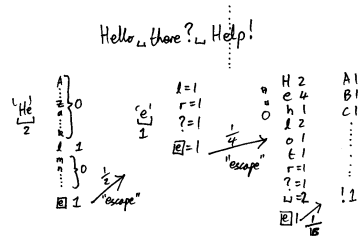 Hello,␣there?␣Help!
'He'
2
A
z
a
k
} 0
l 1
m
n
} 0
e 1
1/2
"escape"
'e'
1
l=1
r=1
?=1
e=1
1/4
"escape"
=0
H 2
e 4
h 1
l 2
o 1
t 1
r=1
?=1
␣=2
e 1
A 1
B 1
C 1
! 1